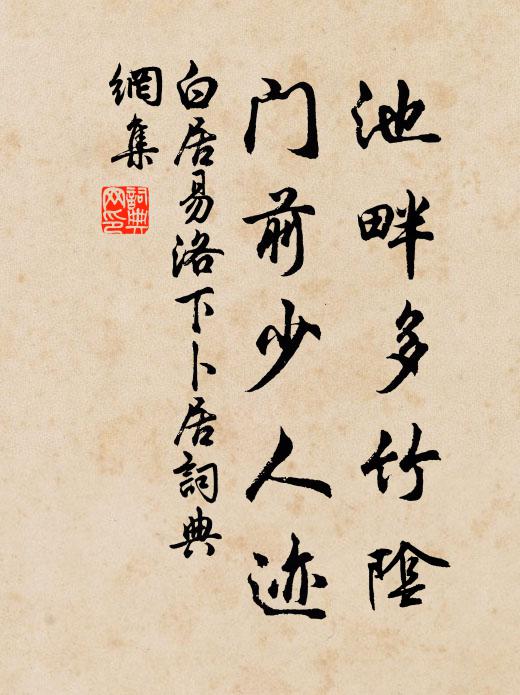 池畔多竹陰
门前少人迹
白居易洛下卜居詞典
網集
詞典网印